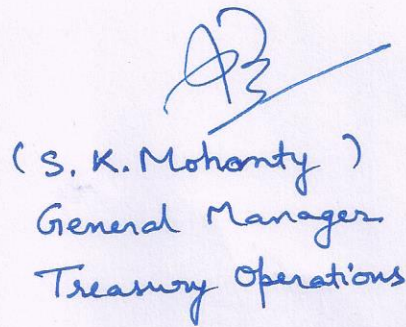 ( S. K. Mohanty )
General Manager
Treasury Operations